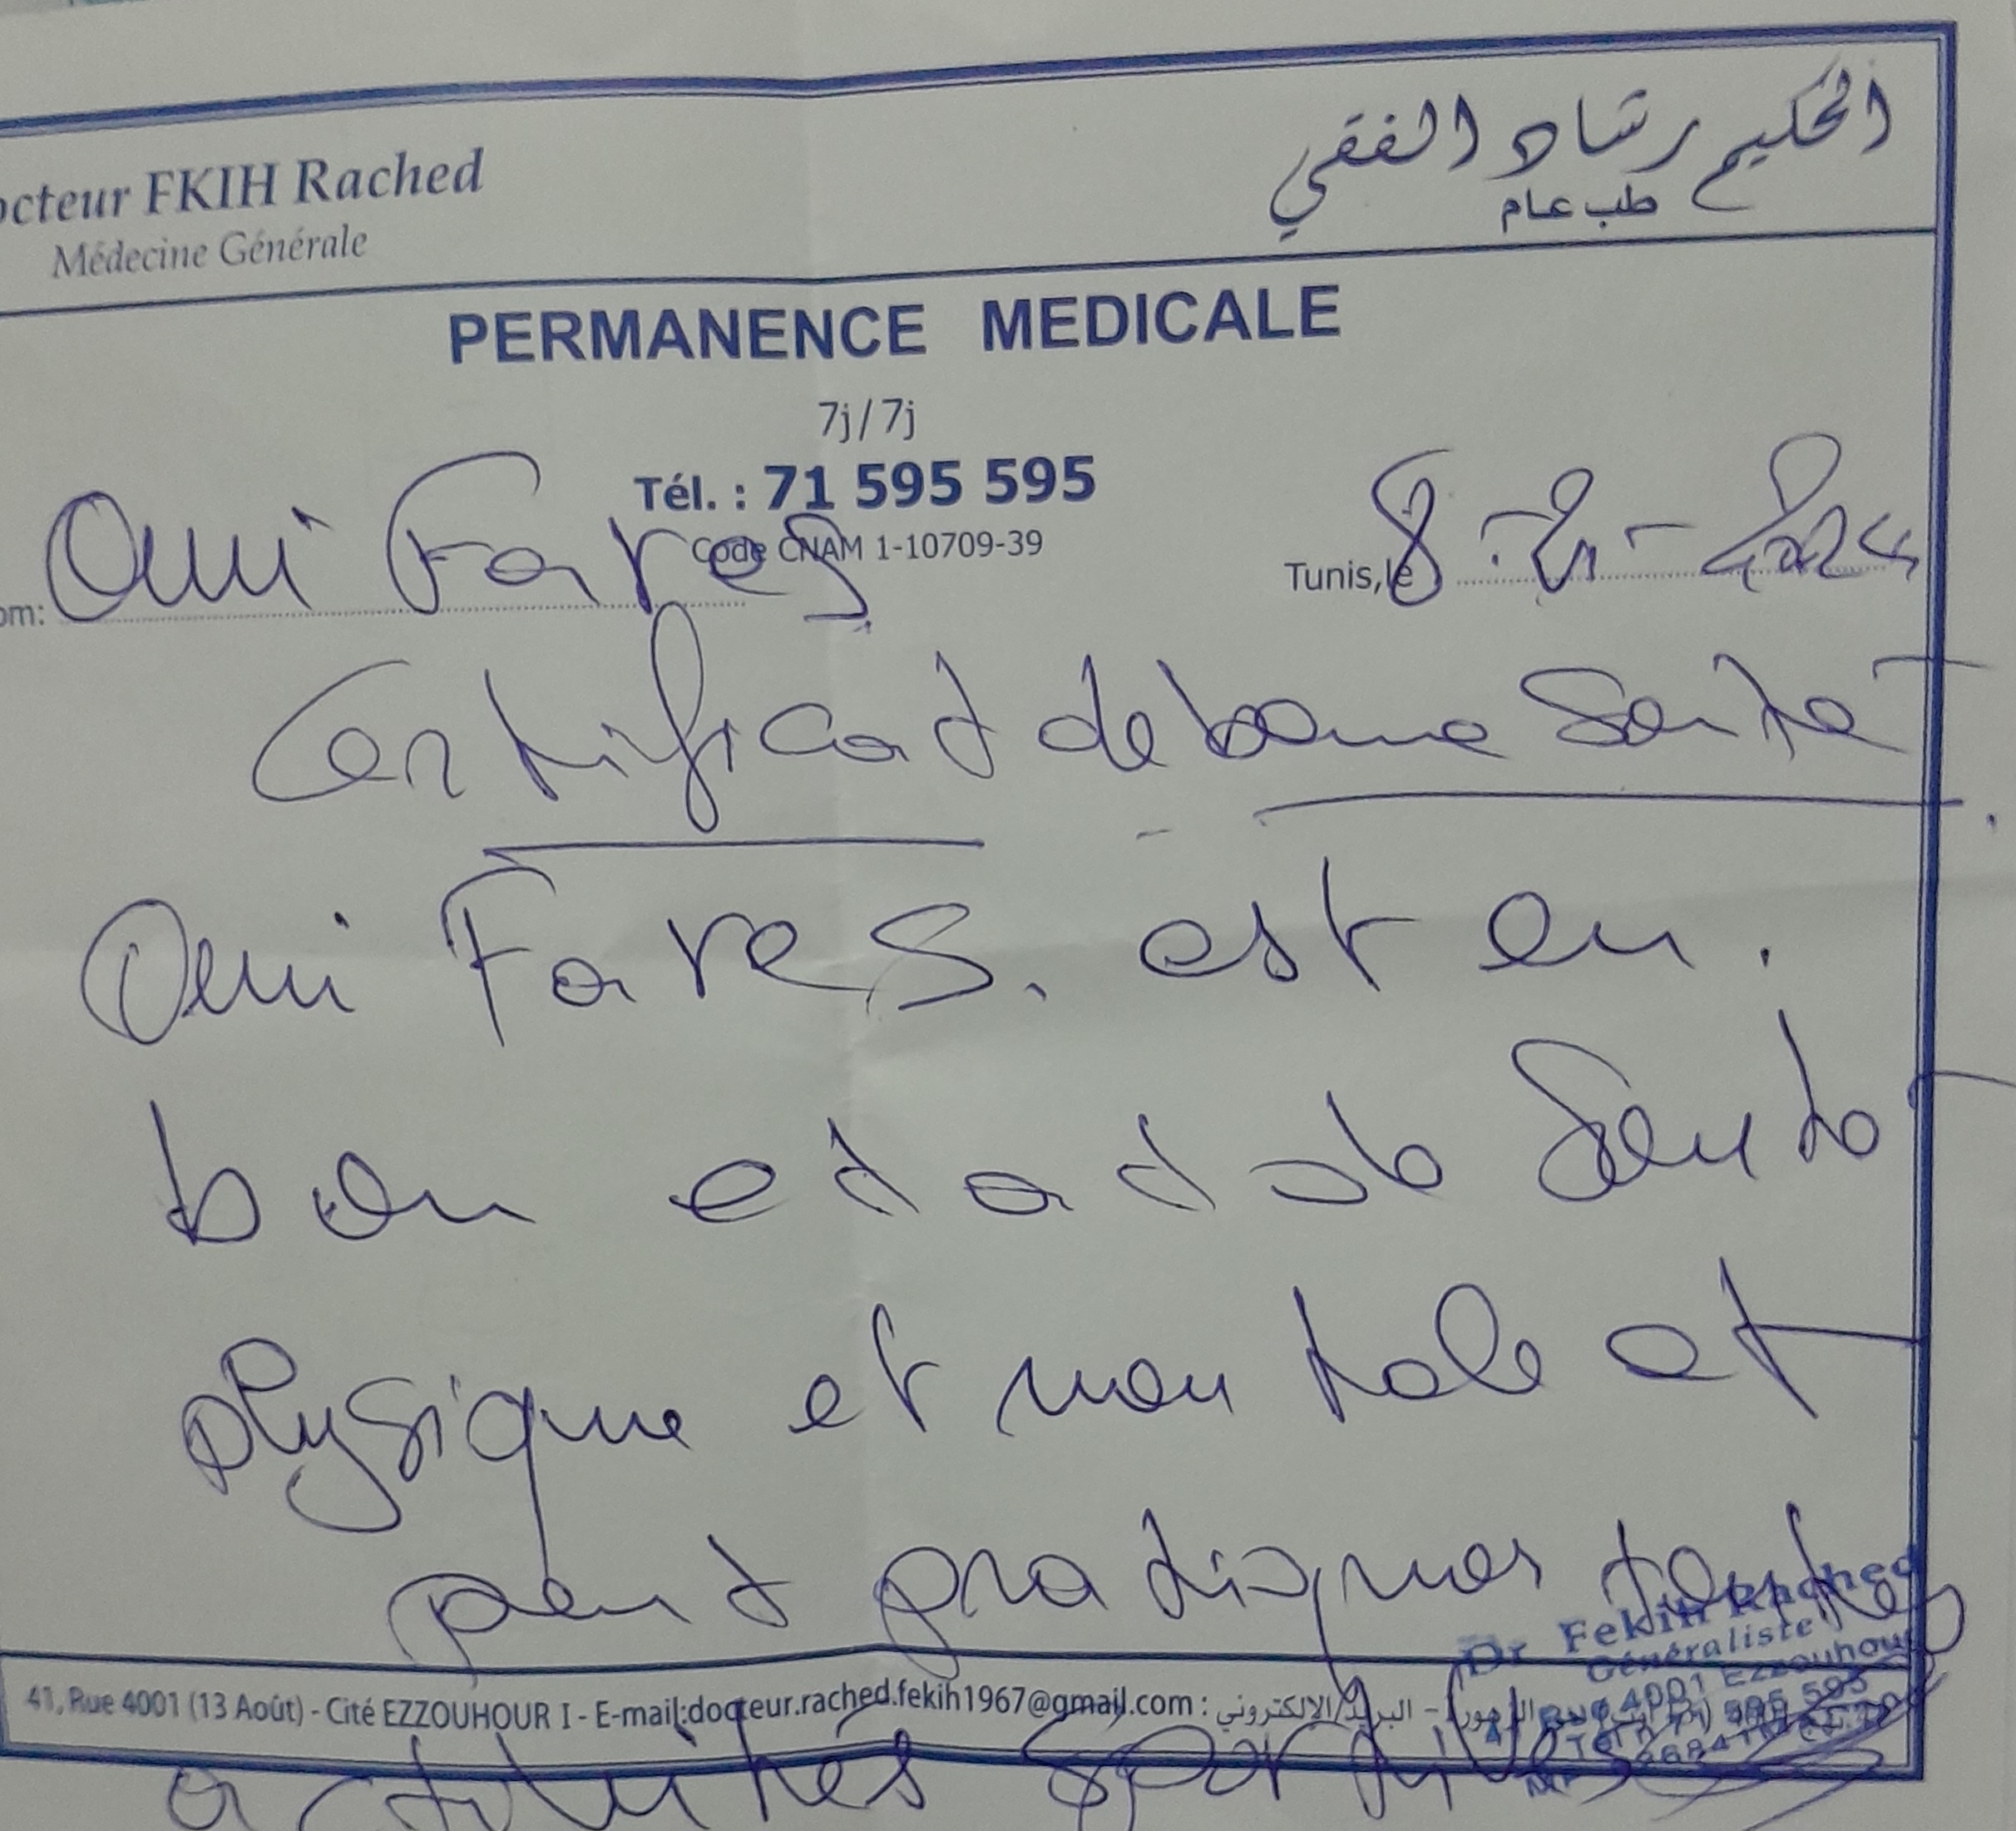 octeur FKIH Rached
Médecine Générale
الحكيم رشاد الفقي
طب عام
PERMANENCE MEDICALE
7j/7j
Tél. : 71 595 595
Code CNAM 1-10709-39
om: Oui Fares
Tunis, le 8-2-2024
Certificat de bonne Santé
Oui Fares. est en.
bon etat de Santé
physique et mentale et
peut pratiquer toutes
41, Rue 4001 (13 Août) - Cité EZZOUHOUR I - E-mail:docteur.rached.fekih1967@gmail.com : البريد الالكتروني -
activités sportives
Dr Fekih Rached
Généraliste
4001 Ezzouhour
595 595